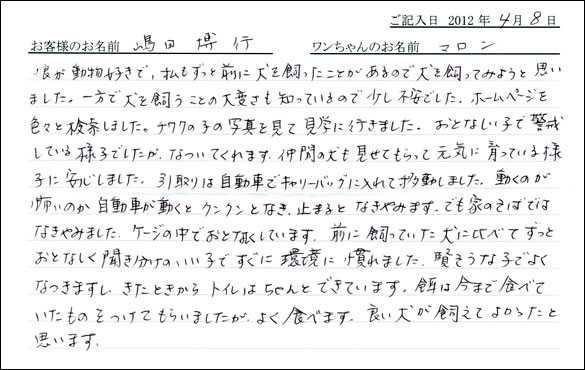 ご記入日 2012年4月8日
お客様のお名前 嶋田 博行 ワンちゃんのお名前 マロン
娘が動物好きで、私もずっと前に犬を飼ったことがあるので犬を飼ってみようと思い
ました。一方で犬を飼うことの大変さも知っているので少し不安でした。ホームページを
色々と検索しました。チワワの子の写真を見て見学に行きました。おとなしい子で警戒
している様子でしたが、なついてくれます。仲間の犬も見せてもらって元気に育っている様
子に安心しました。引取りは自動車でキャリーバッグに入れて移動しました。動くのが
怖いのか自動車が動くとクンクンとなき、止まるとなきやみます。でも家のそばでは
なきやみました。ケージの中でおとなしくしています。前に飼っていた犬に比べてずっと
おとなしく聞き分けのいい子ですぐに環境に慣れました。賢そうな子でよく
なつきますし、きたときからトイレはちゃんとできています。餌は今まで食べて
いたものをつけてもらいましたが、よく食べます。良い犬が飼えてよかったと
思います。